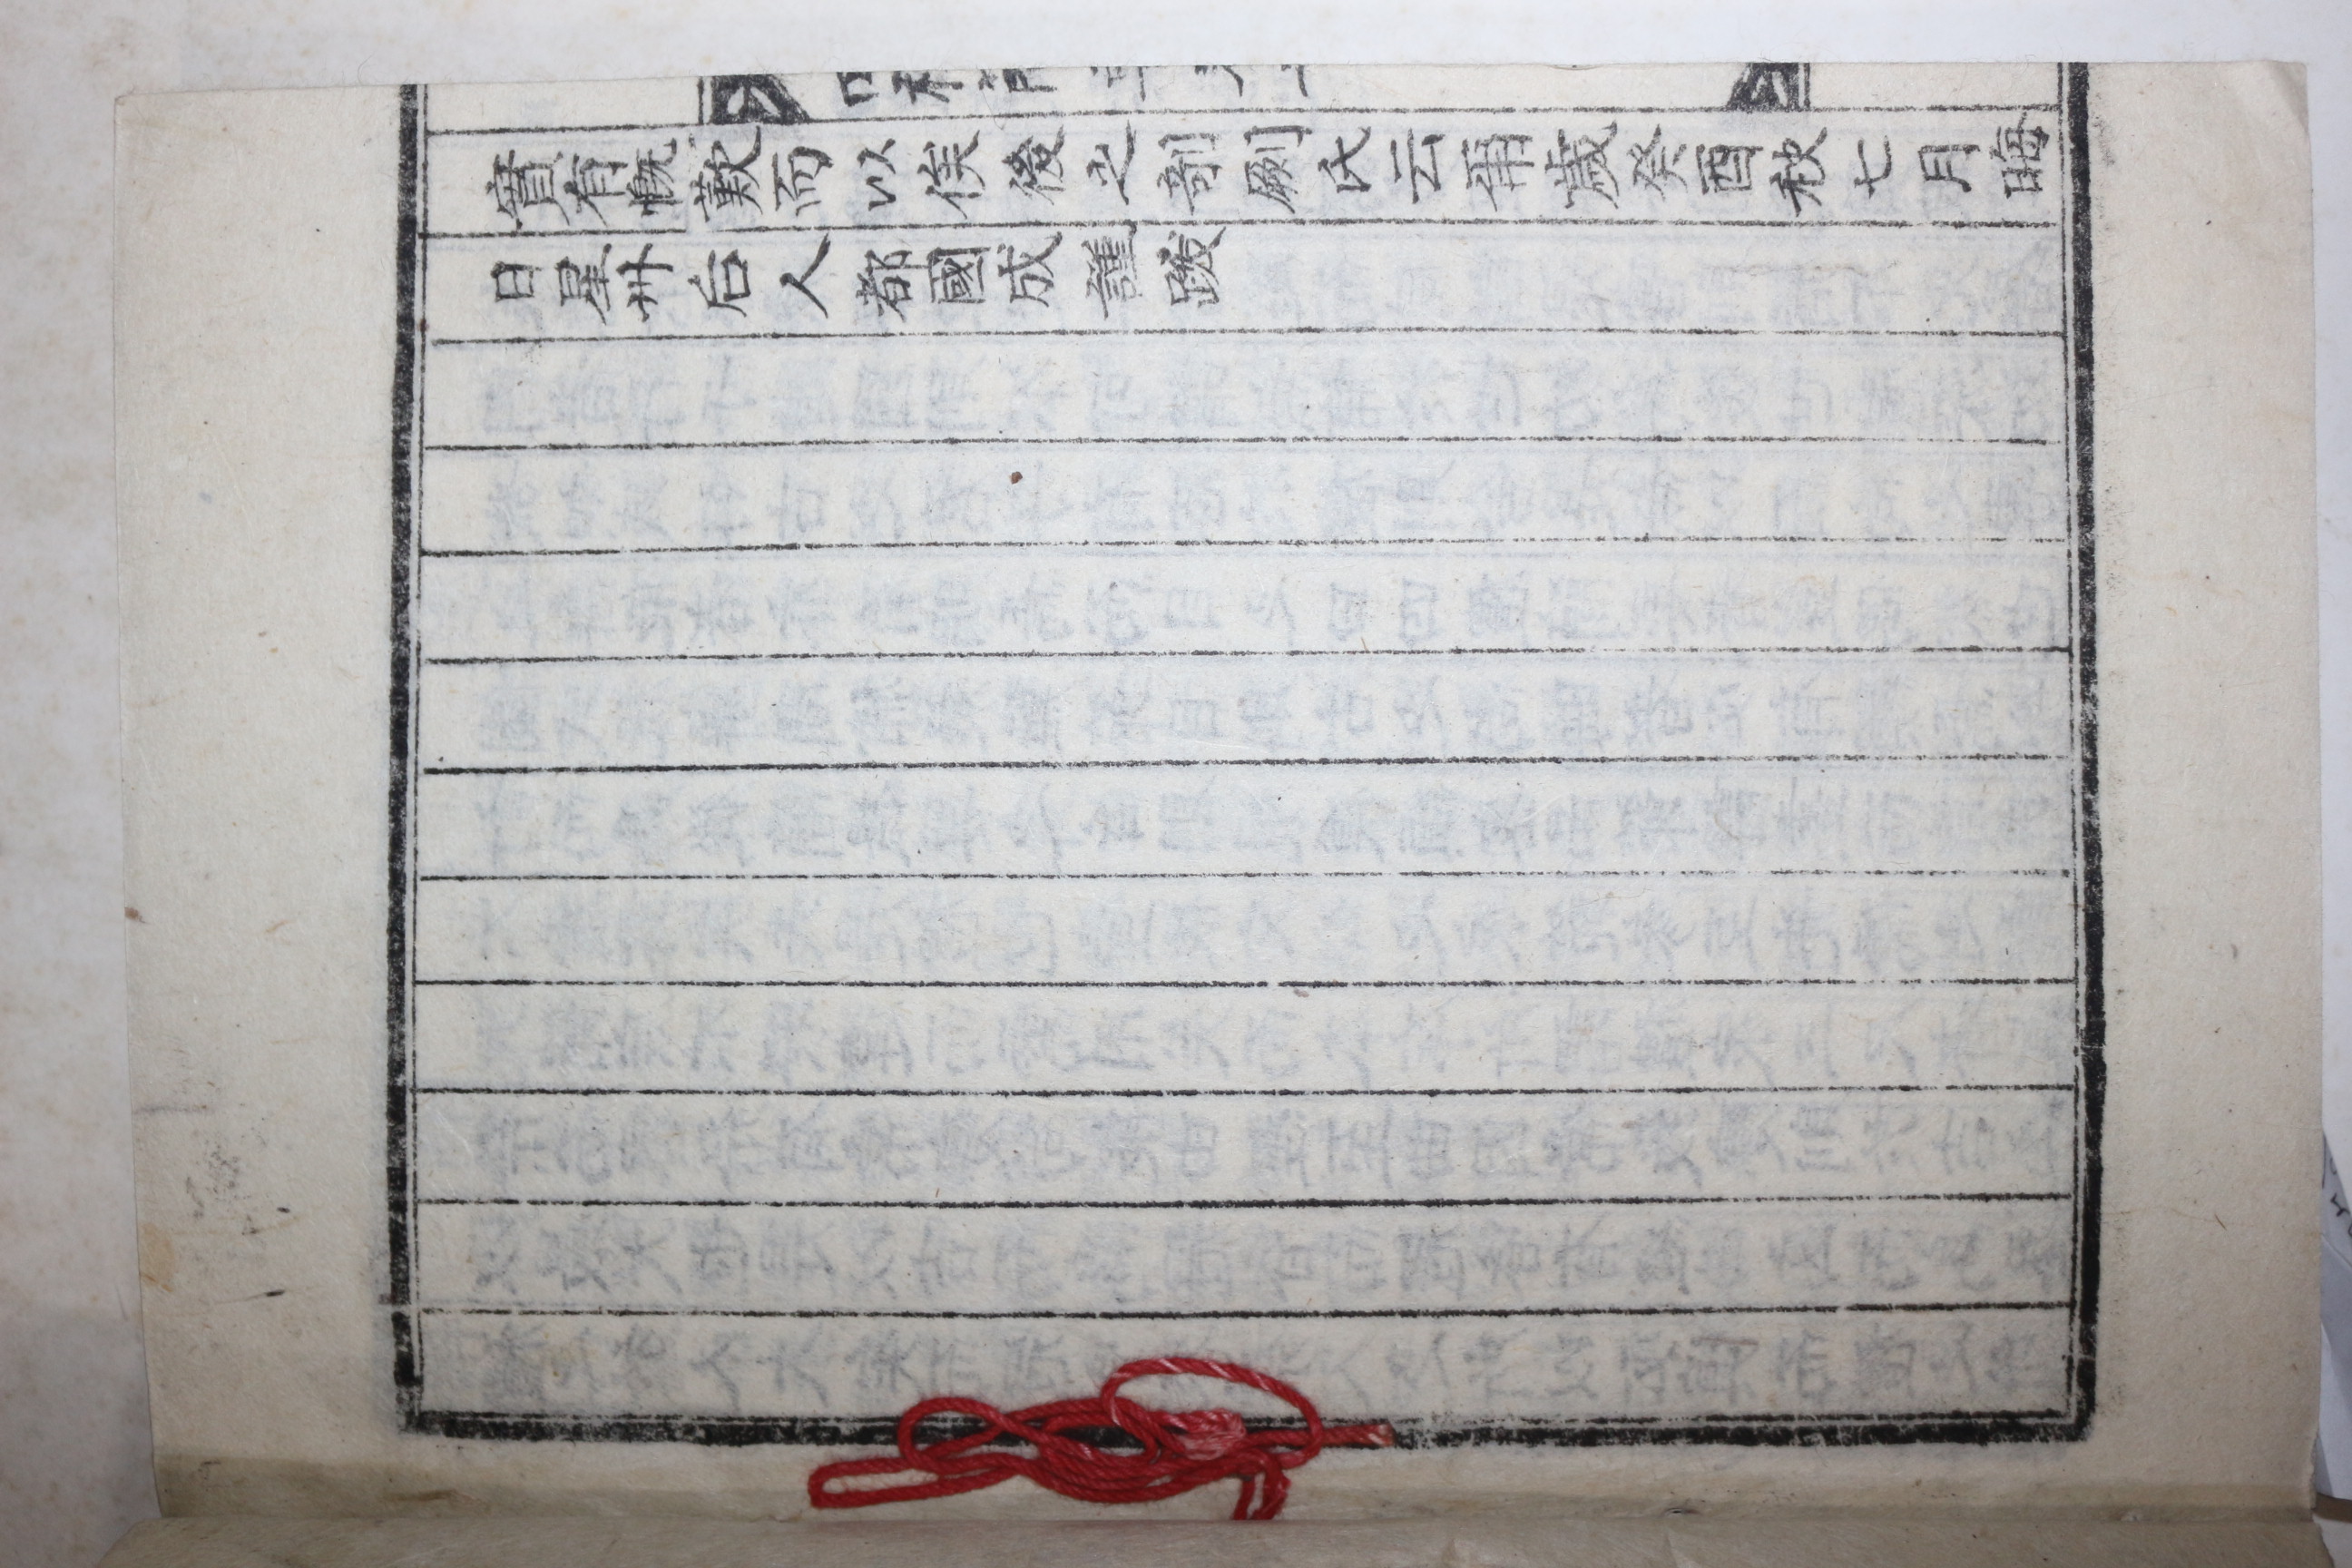 實有慨歎而以俟後之剞劂氏云爾歲癸酉秋七月晦
日星州后人都國成謹跋